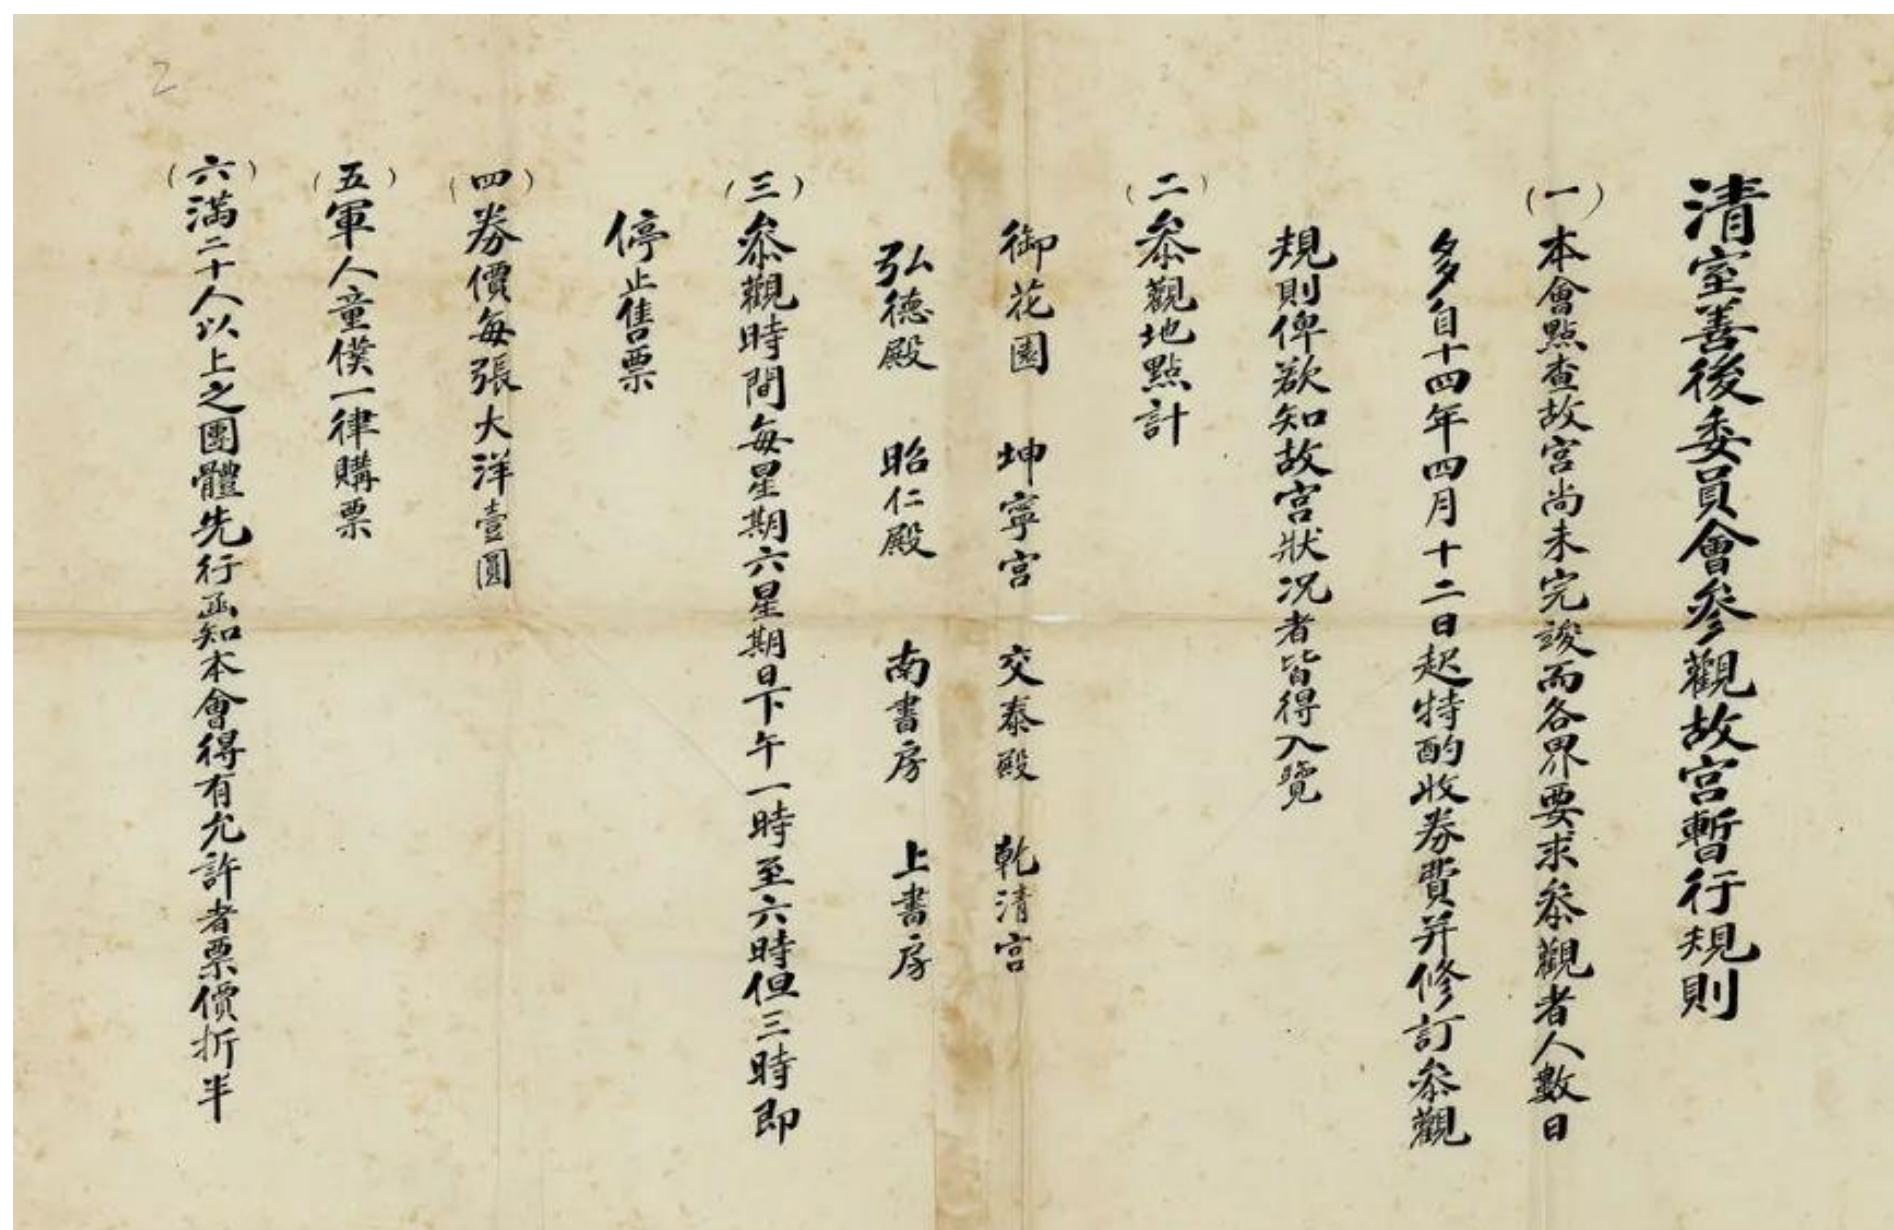 清室善後委員會參觀故宮暫行規則
(一)本會點查故宮尚未完竣而各界要求叅觀者人數日
多自十四年四月十二日起特酌收券費并修訂叅觀
規則俾欲知故宮狀况者皆得入覽
(二)叅觀地點計
御花園 坤寧宮 交泰殿 乾清宮
弘德殿 昭仁殿 南書房 上書房
(三)叅觀時間每星期六星期日下午一時至六時但三時即
停止售票
(四)券價每張大洋壹圓
(五)軍人童僕一律購票
(六)滿二十人以上之團體先行函知本會得有允許者票價折半
2